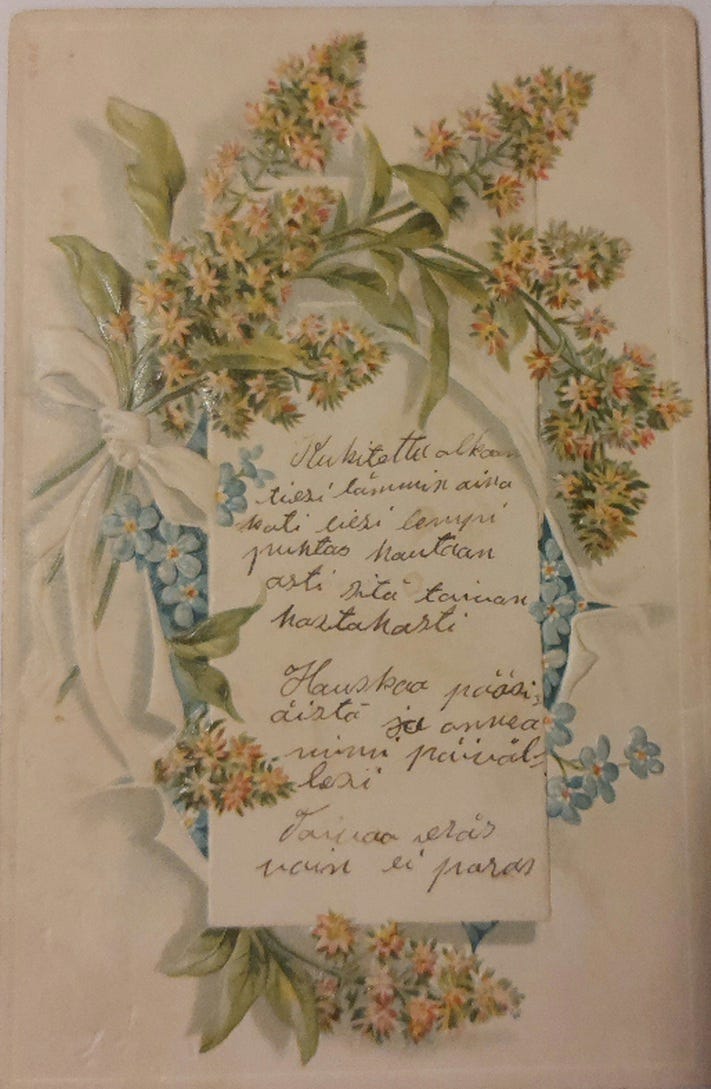 Kukitettu olkoon
tiesi lämmin aina
koti liesi lempi
puhtas hautaan
asti sitä toivon
hartahasti
Hauskaa pääsi,
äistä ja onnea
nimi päiväl-
lesi
Toivoo eräs
vain ei paras